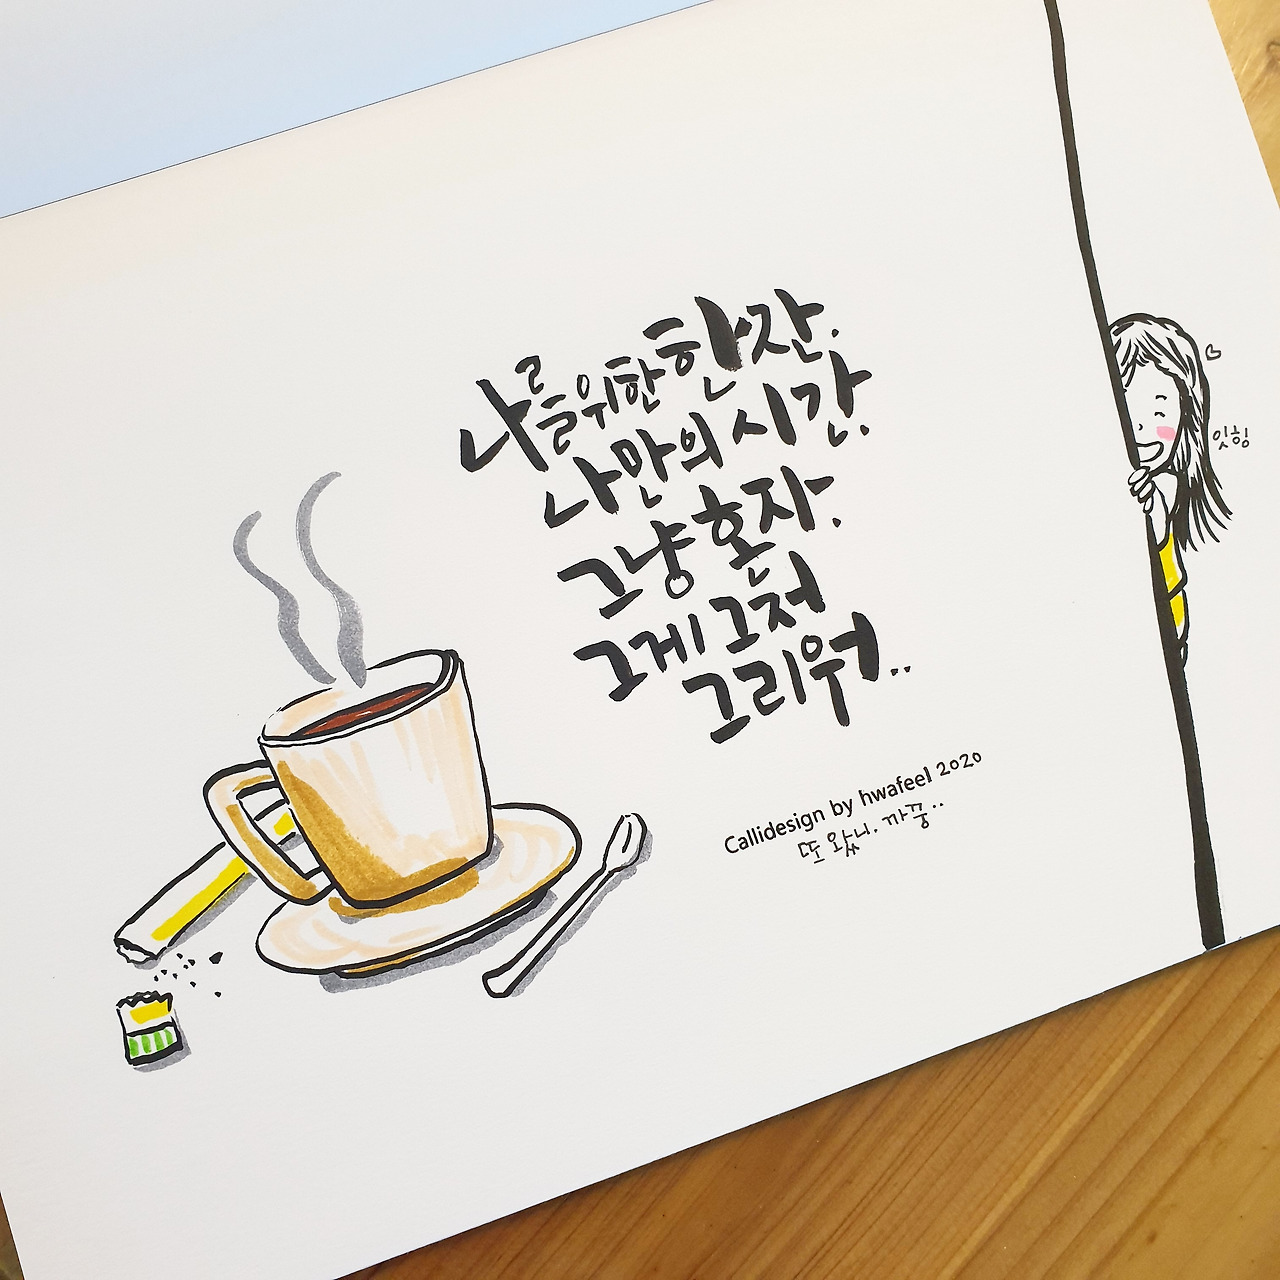 나를 위한 한 잔.
나만의 시간.
그냥 혼자.
그게 그저
그리워..
Callidesign by hwafeel 2020
또 왔니. 까꿍..
잇힝